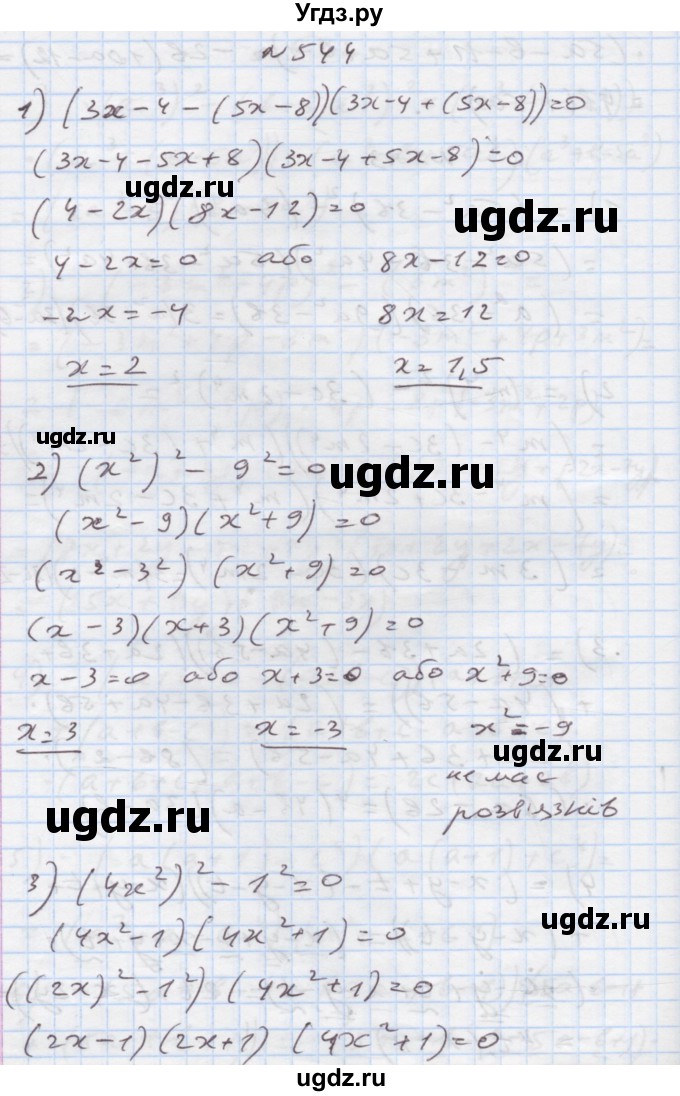 Угдз.ру
№544
1) (3x-4-(5x-8))(3x-4+(5x-8))=0
(3x-4-5x+8)(3x-4+5x-8)=0
ugdz.ru
ugdz.ru
(4-2x)(8x-12)=0
4-2x=0 або 8x-12=0
-2x=-4 8x=12
x=2 x=1,5
ugdz.ru
ugdz.ru
2) (x²)²-9²=0
(x²-9)(x²+9)=0
(x²-3²)(x²+9)=0
(x-3)(x+3)(x²+9)=0
x-3=0 або x+3=0 або x²+9=0
x=3 x=-3 x²=-9
ugdz.ru
немає
ugdz.ru
розв'язків
3) (4x²)²-1²=0
ugdz.ru
(4x²-1)(4x²+1)=0
((2x)²-1²)(4x²+1)=0
(2x-1)(2x+1)(4x²+1)=0
ugdz.ru